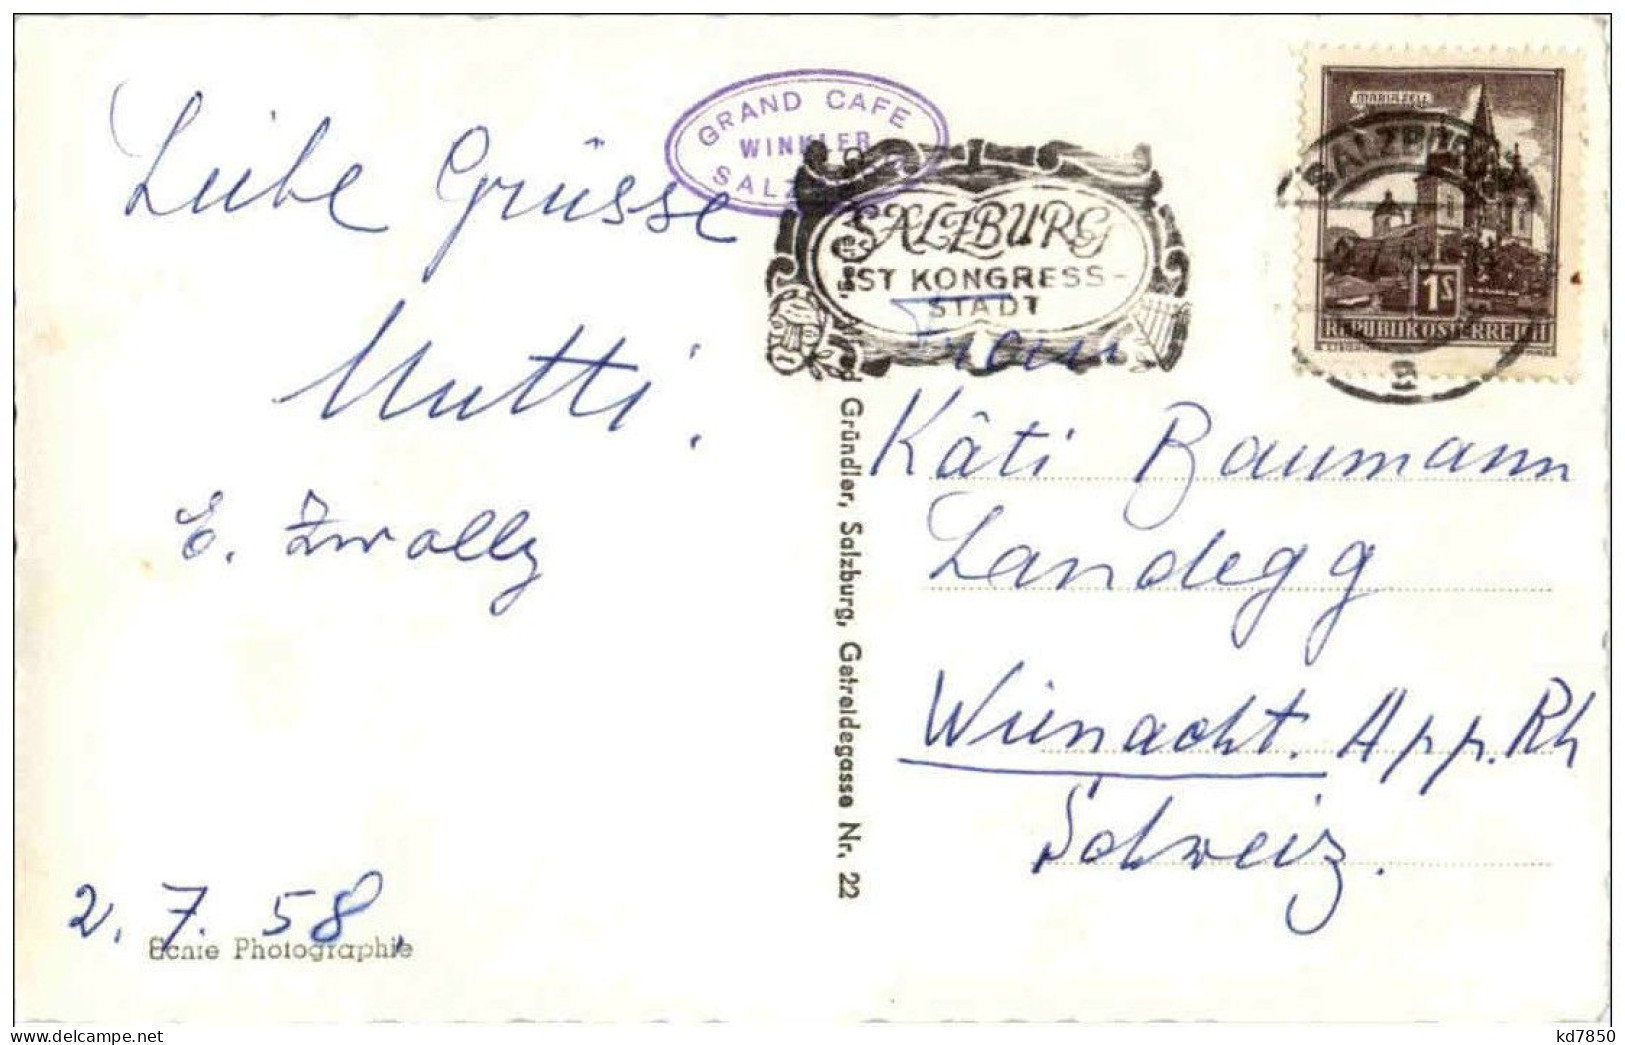 Liebe Grüsse
Mutti.
E. Zwolly
2. 7. 58.
Echte Photographie
GRAND CAFE
WINKLER
SALZ
SALZBURG
IST KONGRESS-
STADT
Gründler, Salzburg, Getreidegasse Nr. 22
MARIAZELL
SALZBURG
1S
REPUBLIK ÖSTERREICH
Frau
Käti Baumann
Landegg
Wienacht. App. Rh
Schweiz.
delcampe.net
kd7850